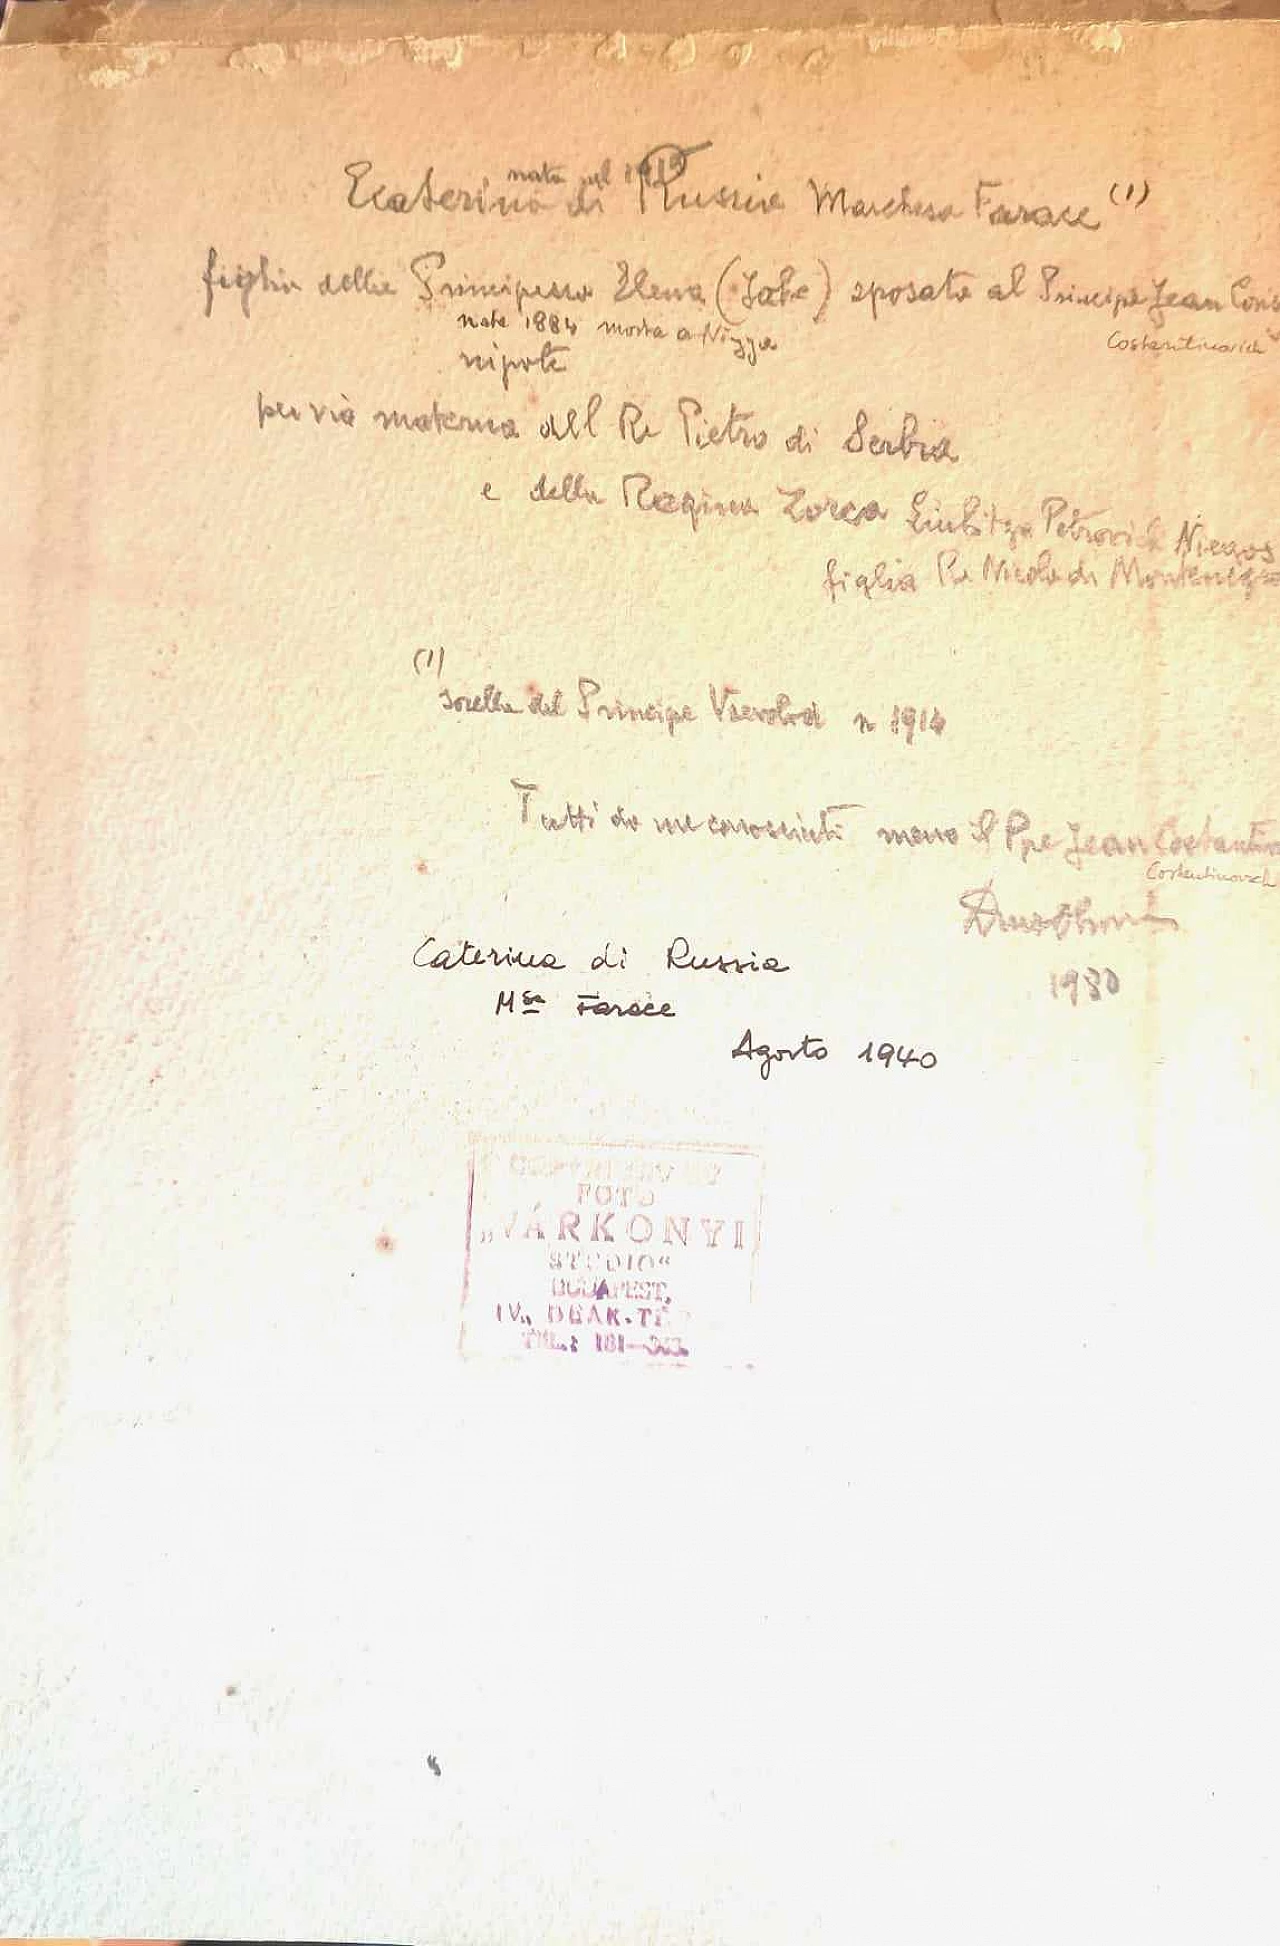 nata nel 1915
Ecaterina di Russia Marchesa Farace (1)
figlia della Principessa Elena ( ) sposata al Principe Jean Cons
nata 1884 morta a Nizza
Costantinovich
nipote
per via materna del Re Pietro di Serbia
e della Regina Zorca Liubitza Petrovich Niegos
figlia Re Nicola di Montenegro
(1)
sorella del Principe Vsevolod n 1914
Tutti da me conosciuti meno il Ppe Jean Costantino
Costantinovich
1980
Caterina di Russia
Msa Farace
Agosto 1940
FOTO
„VÁRKONYI
STUDIO“
BUDAPEST,
IV., DEÁK-TÉR
TEL.: 181—